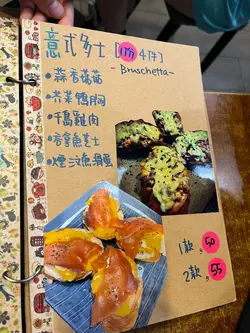 意式多士 [1份4件]
- Bruschetta -
• 蒜香蘑菇
• 芥菜鴨胸
• 千島雞肉
• 吞拿魚芝士
• 煙三文魚滑蛋
1款 $50
2款 $55